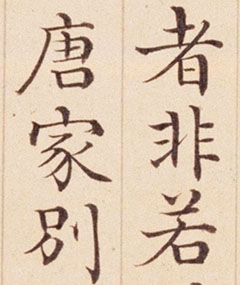 者非若
唐家別